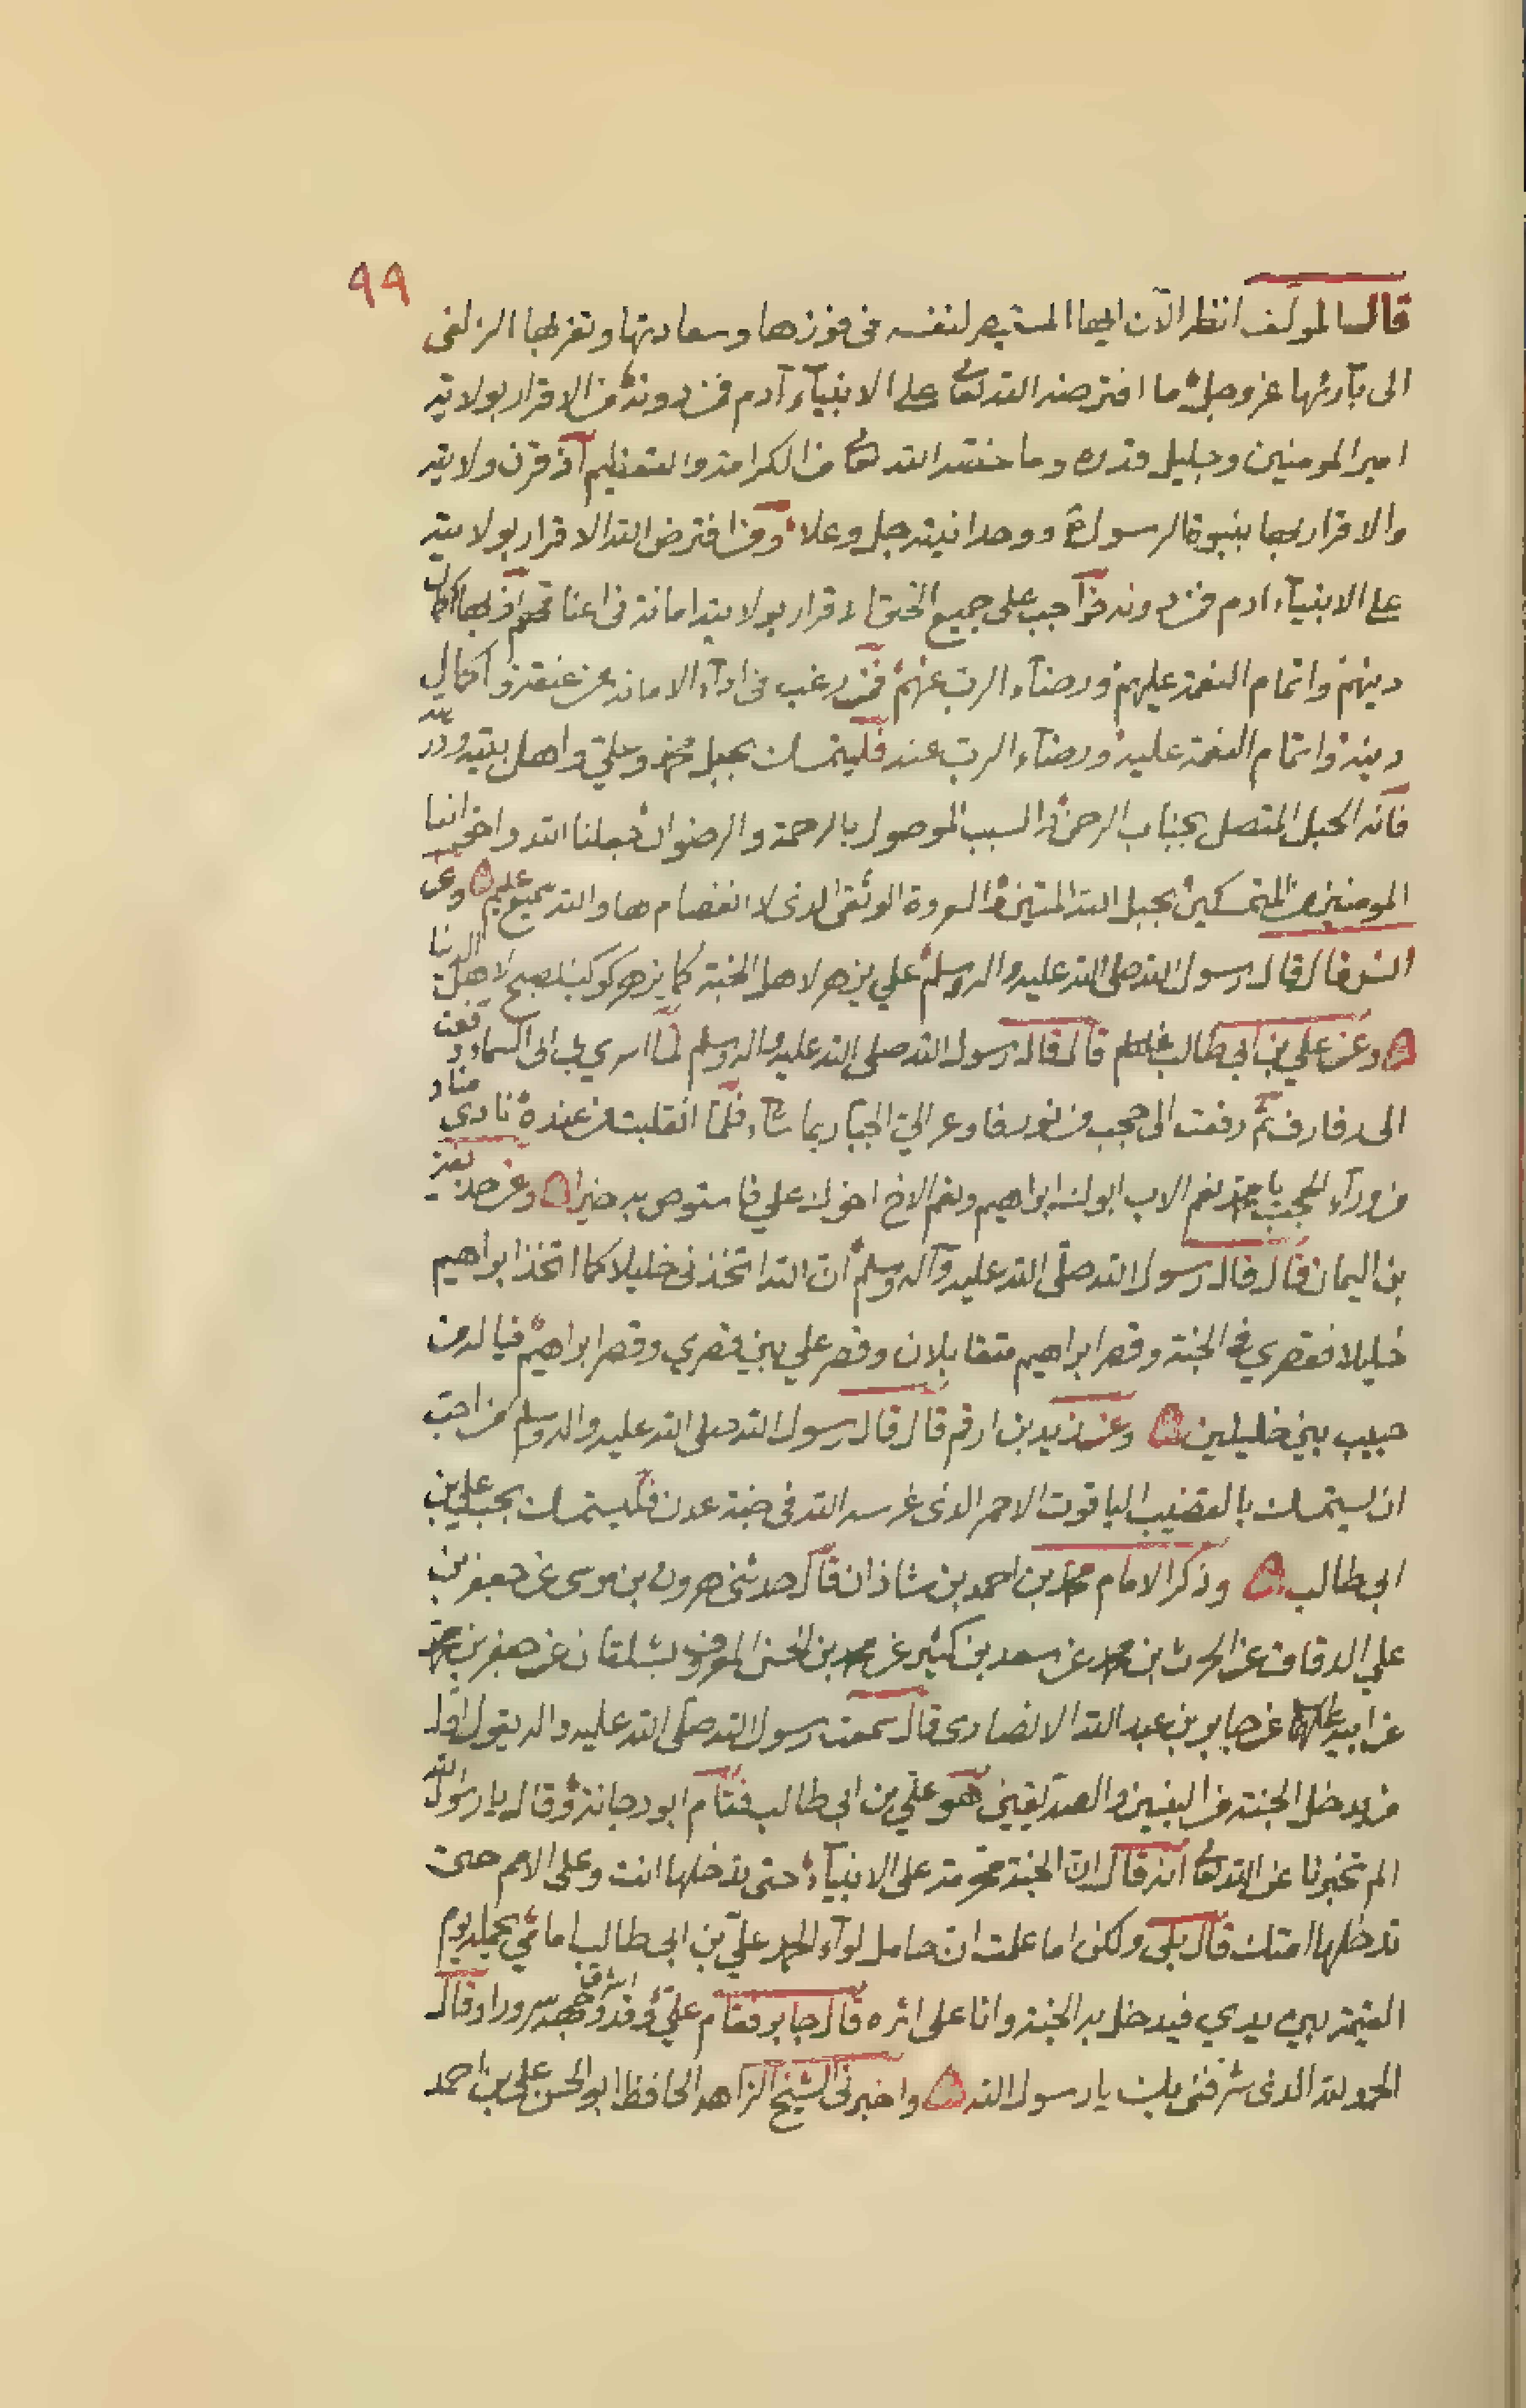 ٩٩
قال المولف انظر الآن ايها المستبصر لنفسه فى فوزها وسعادتها وتقربها الزلفى
الى بآرئها عز وجل ما افترضه الله تعالى على الانبيآء آدم فمن دونه من الاقرار بولايته
امير المومنين وجليل قدره وما خصه الله تعالى من الكرامة والتعظيم اذ قرن ولايته
والاقرار بها بنبوة الرسول ووحدانيته جل وعلا ومن افترض الله الاقرار بولايته
على الانبيآء ادم فمن دونه فواجب على جميع الخلق الاقرار بولايته امانة فى اعناقهم اذ بها اكمال
دينهم واتمام النعمة عليهم ورضآء الرب عنهم فمن رغب فى ادآء الامانة عن عنقه واكمال
دينه واتمام النعمة عليه ورضآء الرب عنه فليتمسك بحبل محمد وعلي واهل بيته وذريته
فانه الحبل المتصل بجناب الرحمن والسبب الموصول بالرحمة والرضوان جعلنا الله واخواننا
المومنين من المتمسكين بحبل الله المتين والعروة الوثقى الذى لا انفصام لها والله سميع عليم وعن
انس قال قال رسول الله صلى الله عليه واله وسلم علي يزهر لاهل الجنة كما يزهر كوكب الصبح لاهل الدنيا
وعن علي بن ابي طالب عليه السلم قال قال رسول الله صلى الله عليه واله وسلم لما اسري بي الى السماء ورفعت
الى رفارف ثم رفعت الى حجب من نور فاوعز الي الجبار بما شآء فلما انقلبت من عنده نادى مناد
من ورآء الحجب يا محمد نعم الاب ابوك ابراهيم ونعم الاخ اخوك علي فاستوص به خيرا وعن حذيفة
بن اليمان قال قال رسول الله صلى الله عليه وآله وسلم ان الله اتخذنى خليلا كما اتخذ ابراهيم
خليلا فقصري في الجنة وقصر ابراهيم متقابلان وقصر علي بين قصري وقصر ابراهيم فيا له من
حبيب بين خليلين وعن زيد بن ارقم قال قال رسول الله صلى الله عليه واله وسلم من احب
ان يستمسك بالقضيب الياقوت الاحمر الذى غرسه الله فى جنة عدن فليستمسك بحب علي بن
ابي طالب وذكر الامام محمد بن احمد بن شاذان قال حدثنى هرون بن موسى عن جعفر بن
علي الدقاق عن الحرث بن محمد عن سعد بن كثير عن محمد بن الحسن المعروف بشلقان عن جعفر بن محمد
عن ابيه عليهما عن جابر بن عبد الله الانصارى قال سمعت رسول الله صلى الله عليه واله يقول اول
من يدخل الجنة من النبيين والصديقين هو علي بن ابي طالب فقام ابو دجانة وقال يا رسول الله
الم تخبرنا عن الله تعالى انه قال ان الجنة محرمة على الانبيآء حتى تدخلها انت وعلى الامم حتى
تدخلها امتك قال بلى ولكن اما علمت ان حامل لوآء الحمد علي بن ابي طالب امامي يحمله يوم
القيمة بين يدي فيدخل به الجنة وانا على اثره قال جابر فقام علي وقد اشرق وجهه سرورا وقال
الحمد لله الذى شرفنى بك يا رسول الله واخبرنى الشيخ الزاهد الحافظ ابو الحسن علي بن احمد